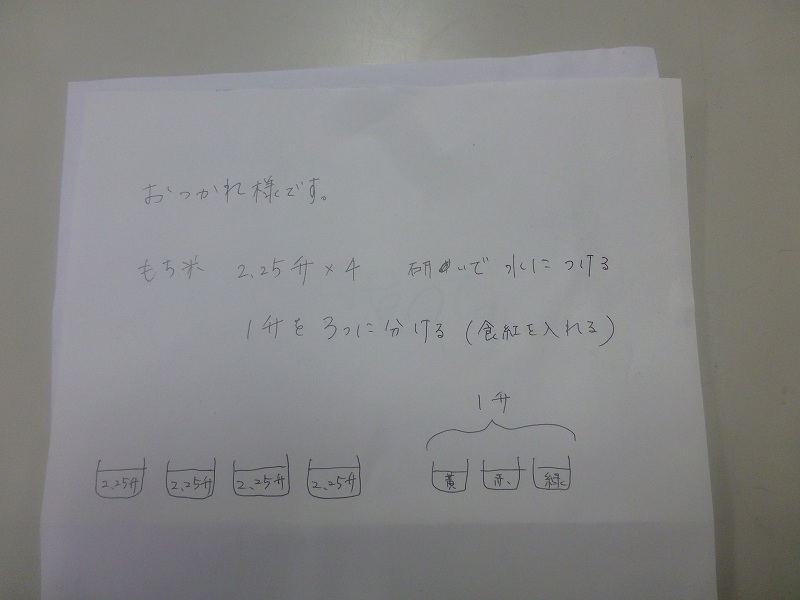 おつかれ様です。
もち米 2.25升×4 研いで水につける
1升を3つに分ける(食紅を入れる)
1升
2.25升 2.25升 2.25升 2.25升 黄 赤 緑